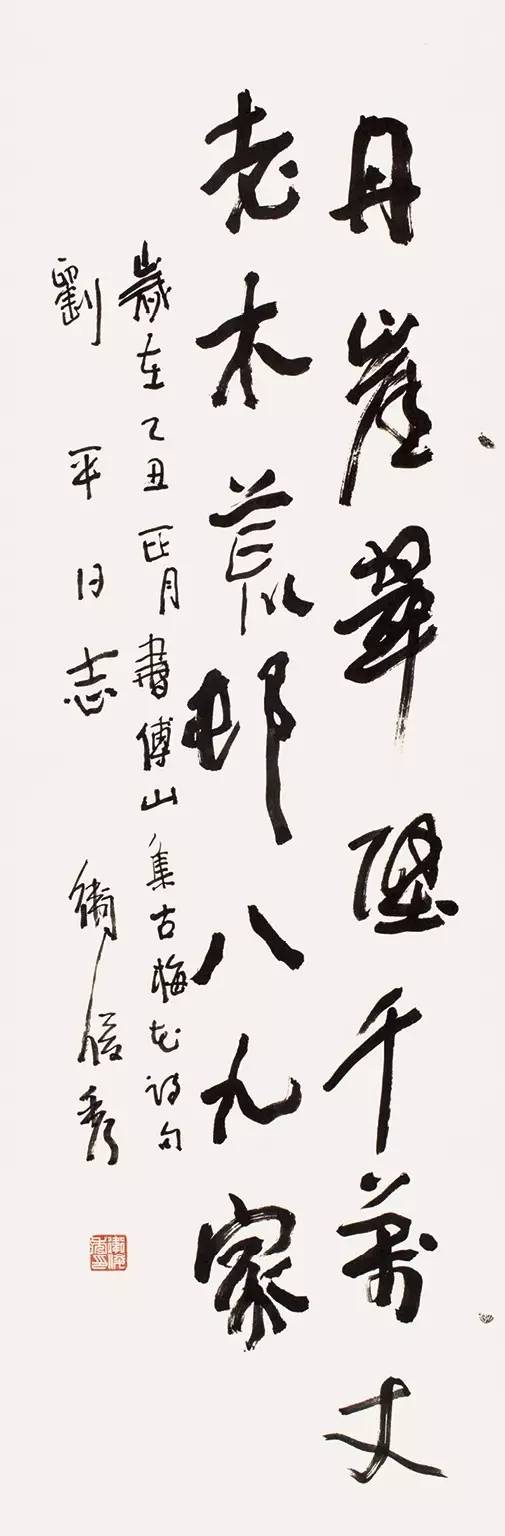 丹崖翠壁千萬丈
老木荒邨八九家
歲在乙丑正月書傅山集古梅花詩句
劉平同志 衛俊秀